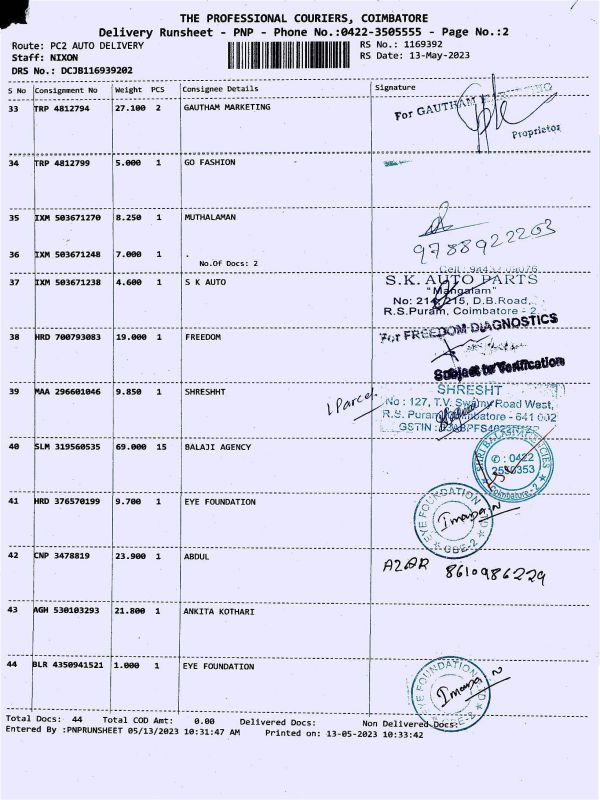 THE PROFESSIONAL COURIERS, COIMBATORE
Delivery Runsheet - PNP - Phone No.:0422-3505555 - Page No.:2
Route: PC2 AUTO DELIVERY RS No.: 1169392
Staff: NIXON RS Date: 13-May-2023
DRS No.: DCJB116939202
S No Consignment No Weight PCS Consignee Details Signature
33 TRP 4812794 27.100 2 GAUTHAM MARKETING
For GAUTHAM
Proprietor
34 TRP 4812799 5.000 1 GO FASHION
35 IXM 503671270 8.250 1 MUTHALAMAN
9788922203
36 IXM 503671248 7.000 1 .
No.Of Docs: 2
37 IXM 503671238 4.600 1 S K AUTO
S.K. AUTO PARTS
"Mangalam"
No: 214, 215, D.B.Road,
R.S.Puram, Coimbatore - 2.
38 HRD 700793083 19.000 1 FREEDOM
For FREEDOM DIAGNOSTICS
Subject to Verification
39 MAA 296601046 9.850 1 SHRESHHT
1 Parcel
SHRESHT
No : 127, T.V. Swamy Road West,
R.S. Puram, Coimbatore - 641 002
GSTIN :
40 SLM 319560535 69.000 15 BALAJI AGENCY
SHRI BALAJI AGENCIES
✆ : 0422
2530353
Coimbatore - 2
41 HRD 376570199 9.700 1 EYE FOUNDATION
EYE FOUNDATION
CBE-2
42 CNP 3478819 23.900 1 ABDUL
8610986229
43 AGH 530103293 21.800 1 ANKITA KOTHARI
44 BLR 4350941521 1.000 1 EYE FOUNDATION
EYE FOUNDATION
CBE-2
Total Docs: 44 Total COD Amt: 0.00 Delivered Docs: Non Delivered Docs:
Entered By :PNPRUNSHEET 05/13/2023 10:31:47 AM Printed on: 13-05-2023 10:33:42